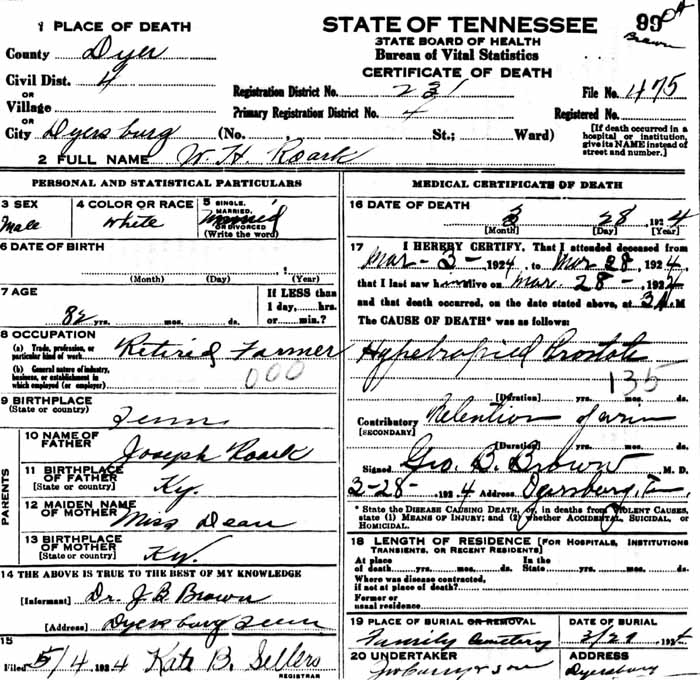 1 PLACE OF DEATH
County Dyer
Civil Dist. 4
OR
Village
OR
City Dyersburg (No. , St.; Ward)
2 FULL NAME W. H. Roark
STATE OF TENNESSEE
STATE BOARD OF HEALTH
Bureau of Vital Statistics
CERTIFICATE OF DEATH
99
Brown
Registration District No. 231
File No. 475
Primary Registration District No. 4
Registered No.
[If death occurred in a
hospital or institution,
give its NAME instead of
street and number.]
PERSONAL AND STATISTICAL PARTICULARS
3 SEX
Male
4 COLOR OR RACE
White
5 SINGLE,
MARRIED,
OR DIVORCED
(Write the word)
Married
6 DATE OF BIRTH
(Month) (Day) (Year)
7 AGE
82 yrs. mos. ds.
If LESS than
1 day, hrs.
or min.?
8 OCCUPATION
(a) Trade, profession, or
particular kind of work
Retired Farmer
(b) General nature of industry,
business, or establishment in
which employed (or employer)
000
9 BIRTHPLACE
(State or country)
Tenn
PARENTS
10 NAME OF
FATHER
Joseph Roark
11 BIRTHPLACE
OF FATHER
(State or country)
Ky.
12 MAIDEN NAME
OF MOTHER
Miss Dean
13 BIRTHPLACE
OF MOTHER
(State or country)
Ky.
14 THE ABOVE IS TRUE TO THE BEST OF MY KNOWLEDGE
[Informant] Dr. J. B. Brown
[Address] Dyersburg Tenn
15
Filed 5/4 1924 Kate B. Sellers
REGISTRAR
MEDICAL CERTIFICATE OF DEATH
16 DATE OF DEATH
3 28 1924
[Month] [Day] [Year]
17 I HEREBY CERTIFY, That I attended deceased from
Mar - 3 - 1924 to Mar 28, 1924
that I last saw him alive on Mar 28 - 1924
and that death occurred, on the date stated above, at 3 A.M
The CAUSE OF DEATH* was as follows:
Hypetropied Prostate
135
[Duration] yrs. mos. ds.
Contributory Retention of urin
[SECONDARY]
[Duration] yrs. mos. ds.
Signed Geo. B. Brown M. D.
3-28- 1924 Address Dyersburg, Ten
* State the DISEASE CAUSING DEATH, or, in deaths from VIOLENT CAUSES,
state (1) MEANS OF INJURY; and (2) whether ACCIDENTAL, SUICIDAL, or
HOMICIDAL.
18 LENGTH OF RESIDENCE [FOR HOSPITALS, INSTITUTIONS
TRANSIENTS, OR RECENT RESIDENTS]
At place
of death yrs. mos. ds.
In the
State yrs. mos. ds.
Where was disease contracted,
if not at place of death?
Former or
usual residence
19 PLACE OF BURIAL OR REMOVAL
Family Cemetery
DATE OF BURIAL
3/29 1924
20 UNDERTAKER
& Son
ADDRESS
Dyersburg